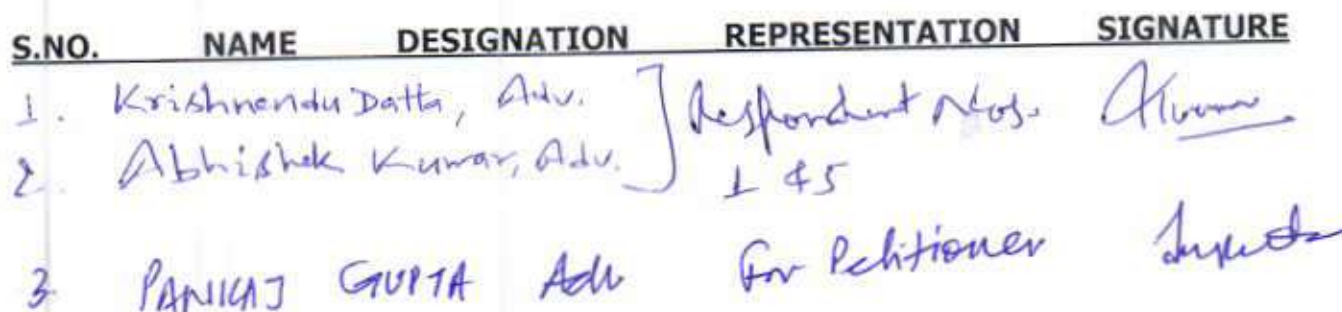 S.NO. NAME DESIGNATION REPRESENTATION SIGNATURE
1. Krishnendu Datta, Adv. Respondent Nos.
2. Abhishek Kumar, Adv. 1 & 5
3 PANKAJ GUPTA Adv For Petitioner